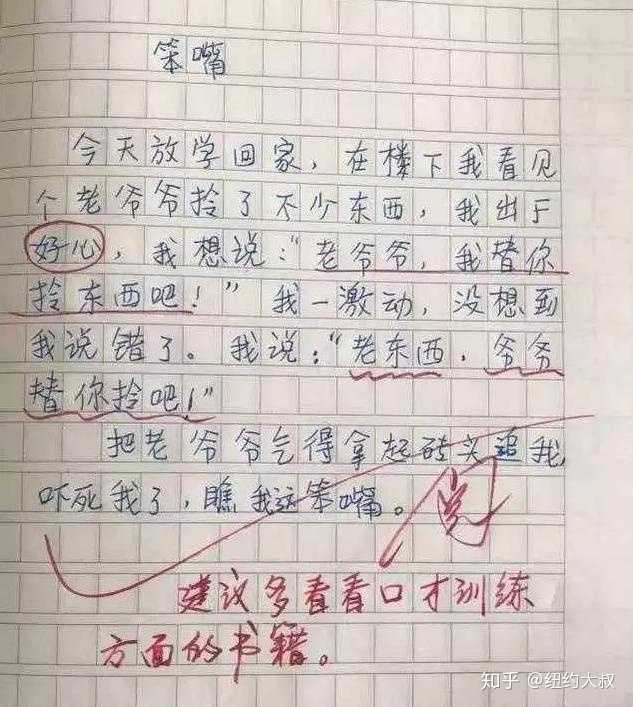 笨嘴
今天放学回家，在楼下我看见
个老爷爷拎了不少东西，我出于
好心，我想说："老爷爷，我替你
拎东西吧！"我一激动，没想到
我说错了。我说："老东西，爷爷
替你拎吧！"
把老爷爷气得拿起砖头追我
吓死我了，瞧我这笨嘴。
阅
建议多看看口才训练
方面的书籍。
知乎 @纽约大叔